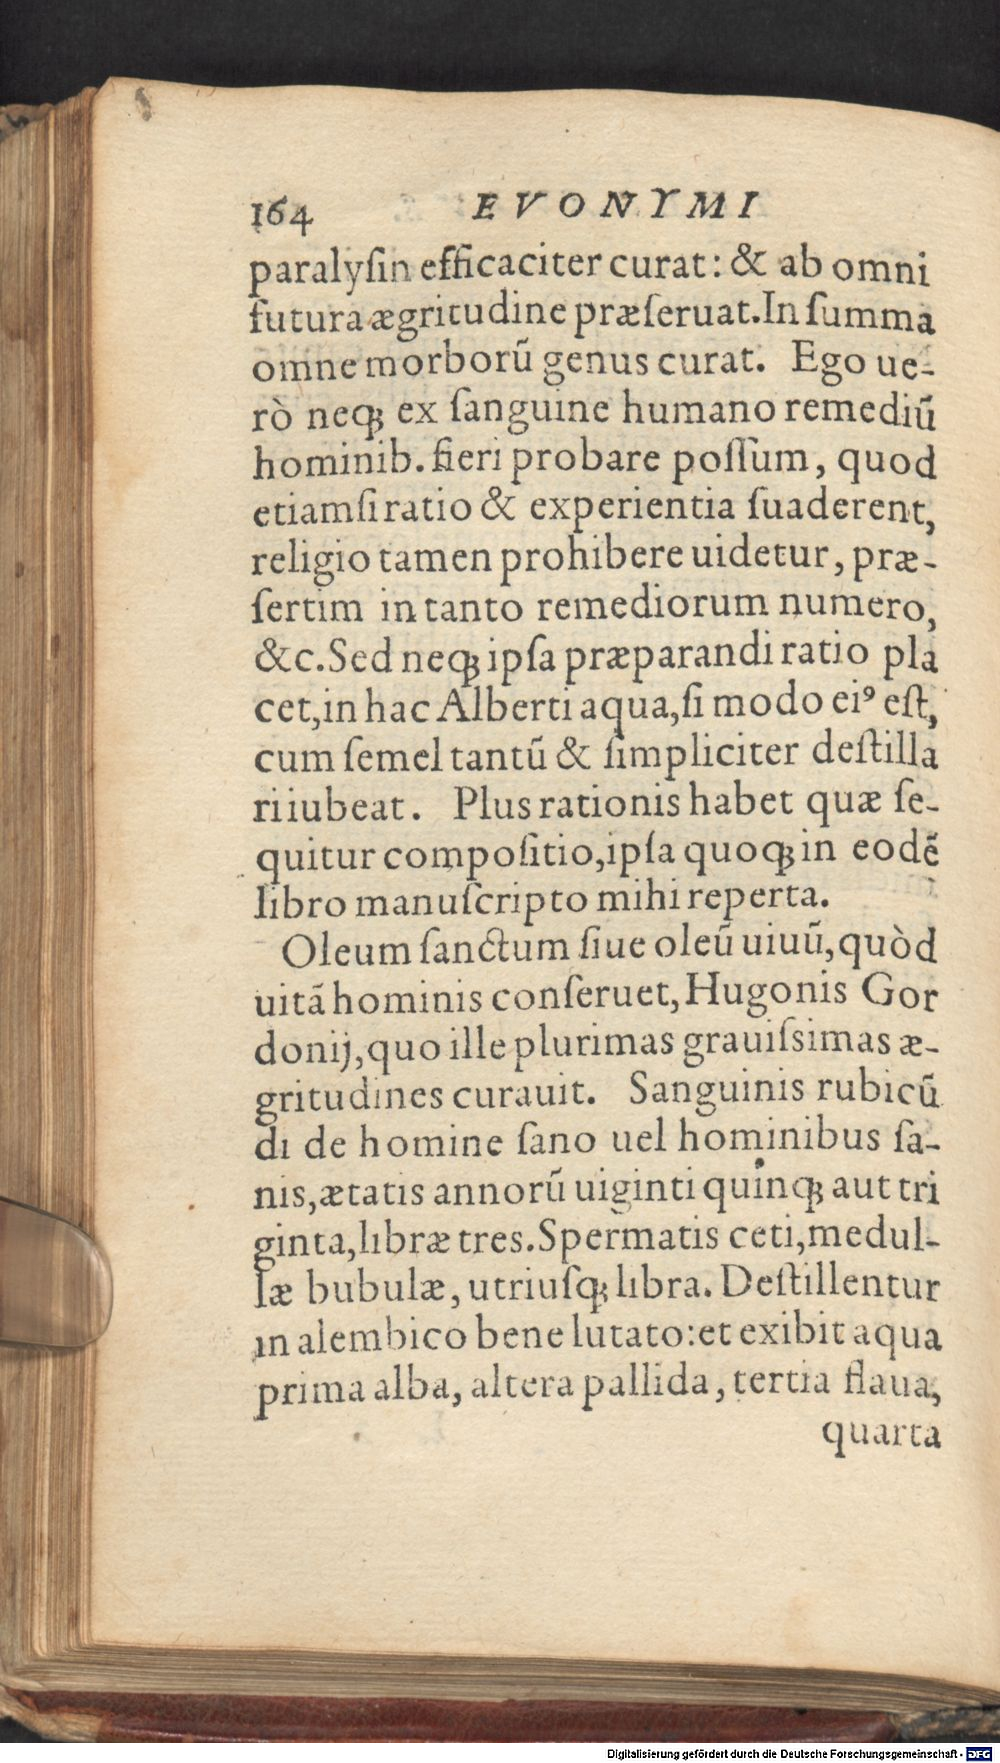 164 EVONYMI
paralyſin efficaciter curat: & ab omni
futura ægritudine præſeruat. In ſumma
omne morborũ genus curat. Ego ue-
rò neqꝫ ex ſanguine humano remediũ
hominib. fieri probare poſſum, quod
etiamſi ratio & experientia ſuaderent,
religio tamen prohibere uidetur, præ-
ſertim in tanto remediorum numero,
&c. Sed neqꝫ ipſa præparandi ratio pla
cet, in hac Alberti aqua, ſi modo eiꝰ eſt,
cum ſemel tantũ & ſimpliciter deſtilla
ri iubeat. Plus rationis habet quæ ſe-
quitur compoſitio, ipſa quoqꝫ in eodẽ
libro manuſcripto mihi reperta.
Oleum ſanctum ſiue oleũ uiuũ, quòd
uitã hominis conſeruet, Hugonis Gor
donij, quo ille plurimas grauiſsimas æ-
gritudines curauit. Sanguinis rubicũ
di de homine ſano uel hominibus ſa-
nis, ætatis annorũ uiginti quinqꝫ aut tri
ginta, libræ tres. Spermatis ceti, medul-
læ bubulæ, utriuſqꝫ libra. Deſtillentur
in alembico bene lutato: et exibit aqua
prima alba, altera pallida, tertia flaua,
quarta
Digitalisierung gefördert durch die Deutsche Forschungsgemeinschaft - DFG